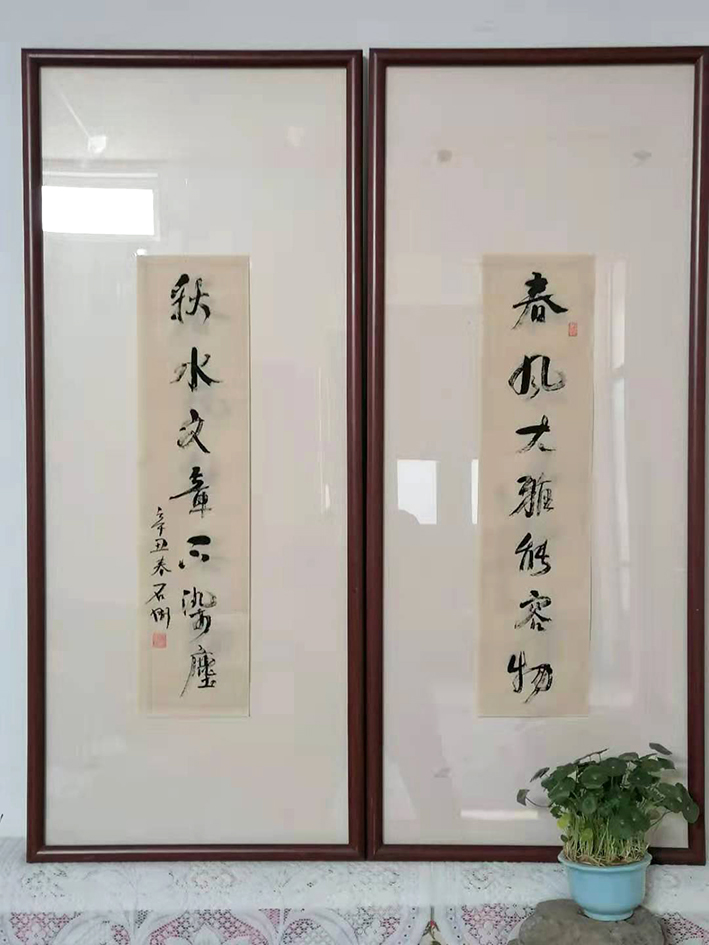 春风大雅能容物
秋水文章不染塵
辛丑春石